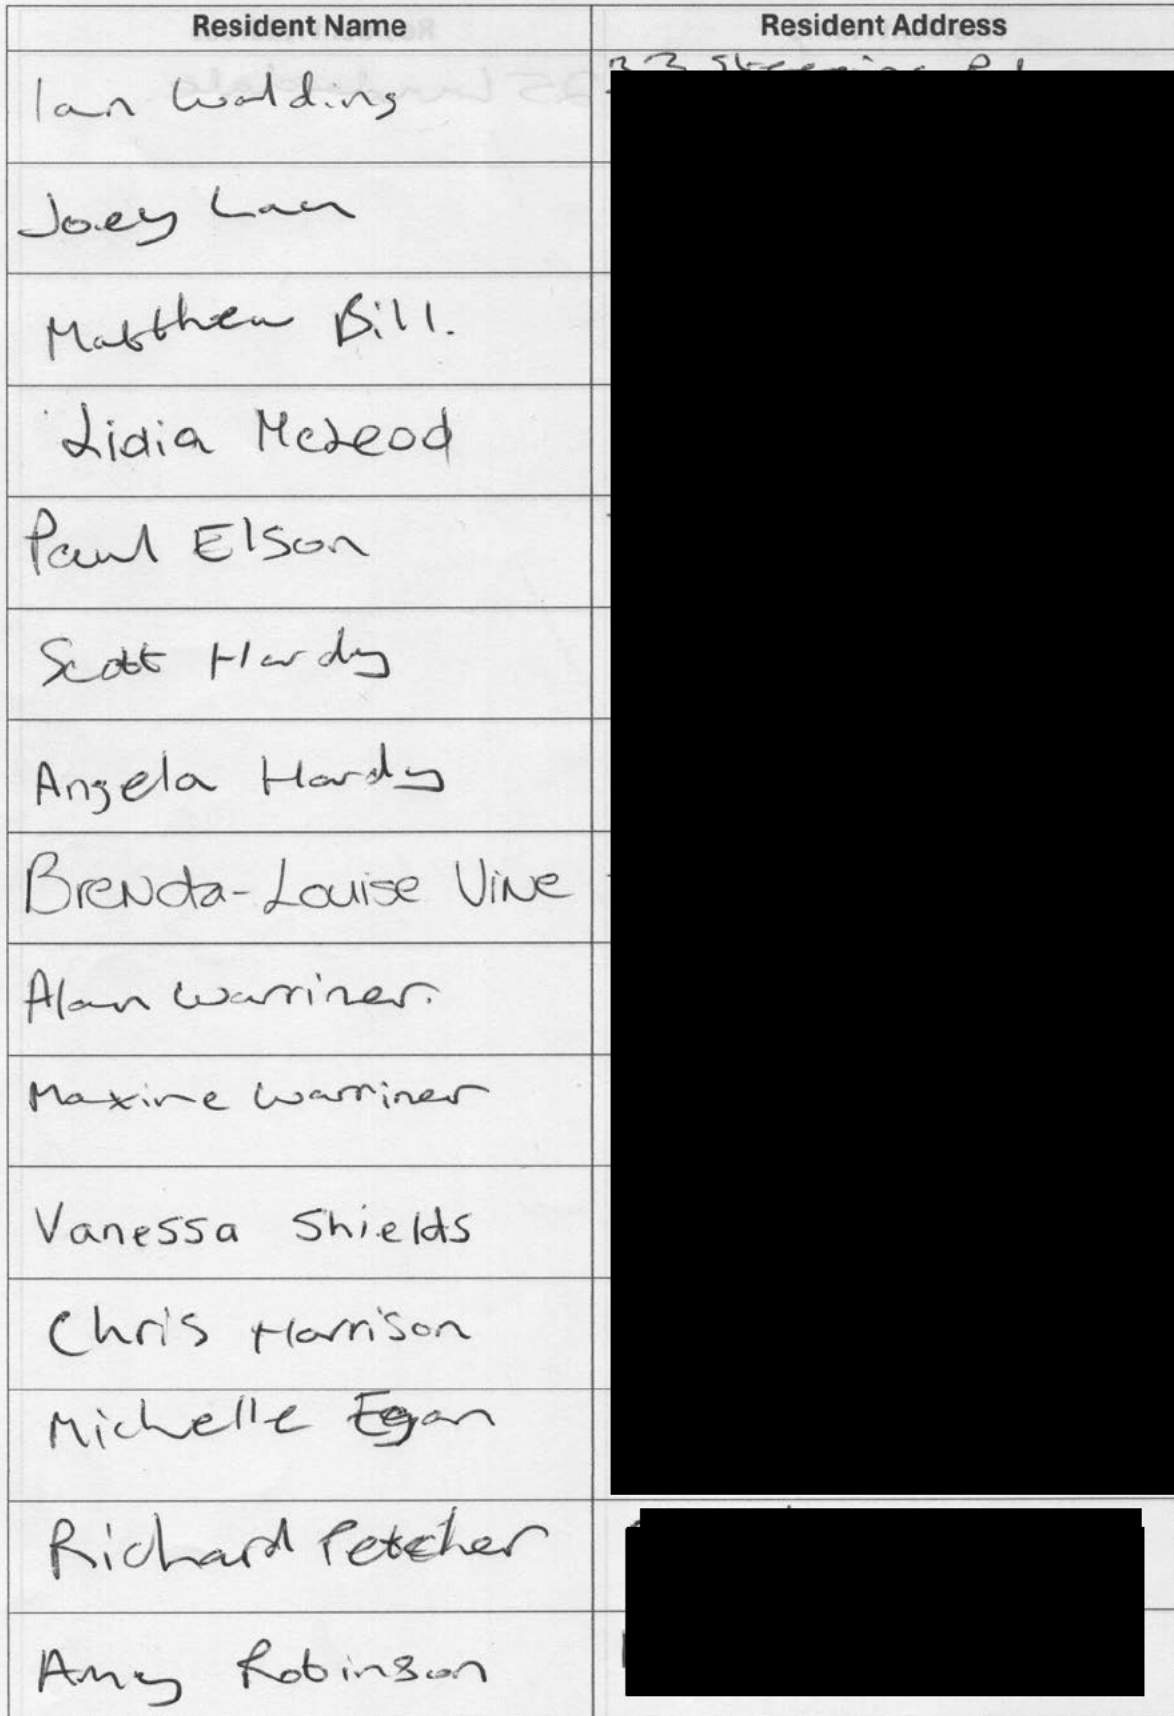 Resident Name Resident Address
Ian Walding
Joey Lau
Matthew Bill.
Lidia McLeod
Paul Elson
Scott Hardy
Angela Hardy
Brenda-Louise Vine
Alan Warriner.
Maxine Warriner
Vanessa Shields
Chris Harrison
Michelle Egan
Richard Petcher
Amy Robinson